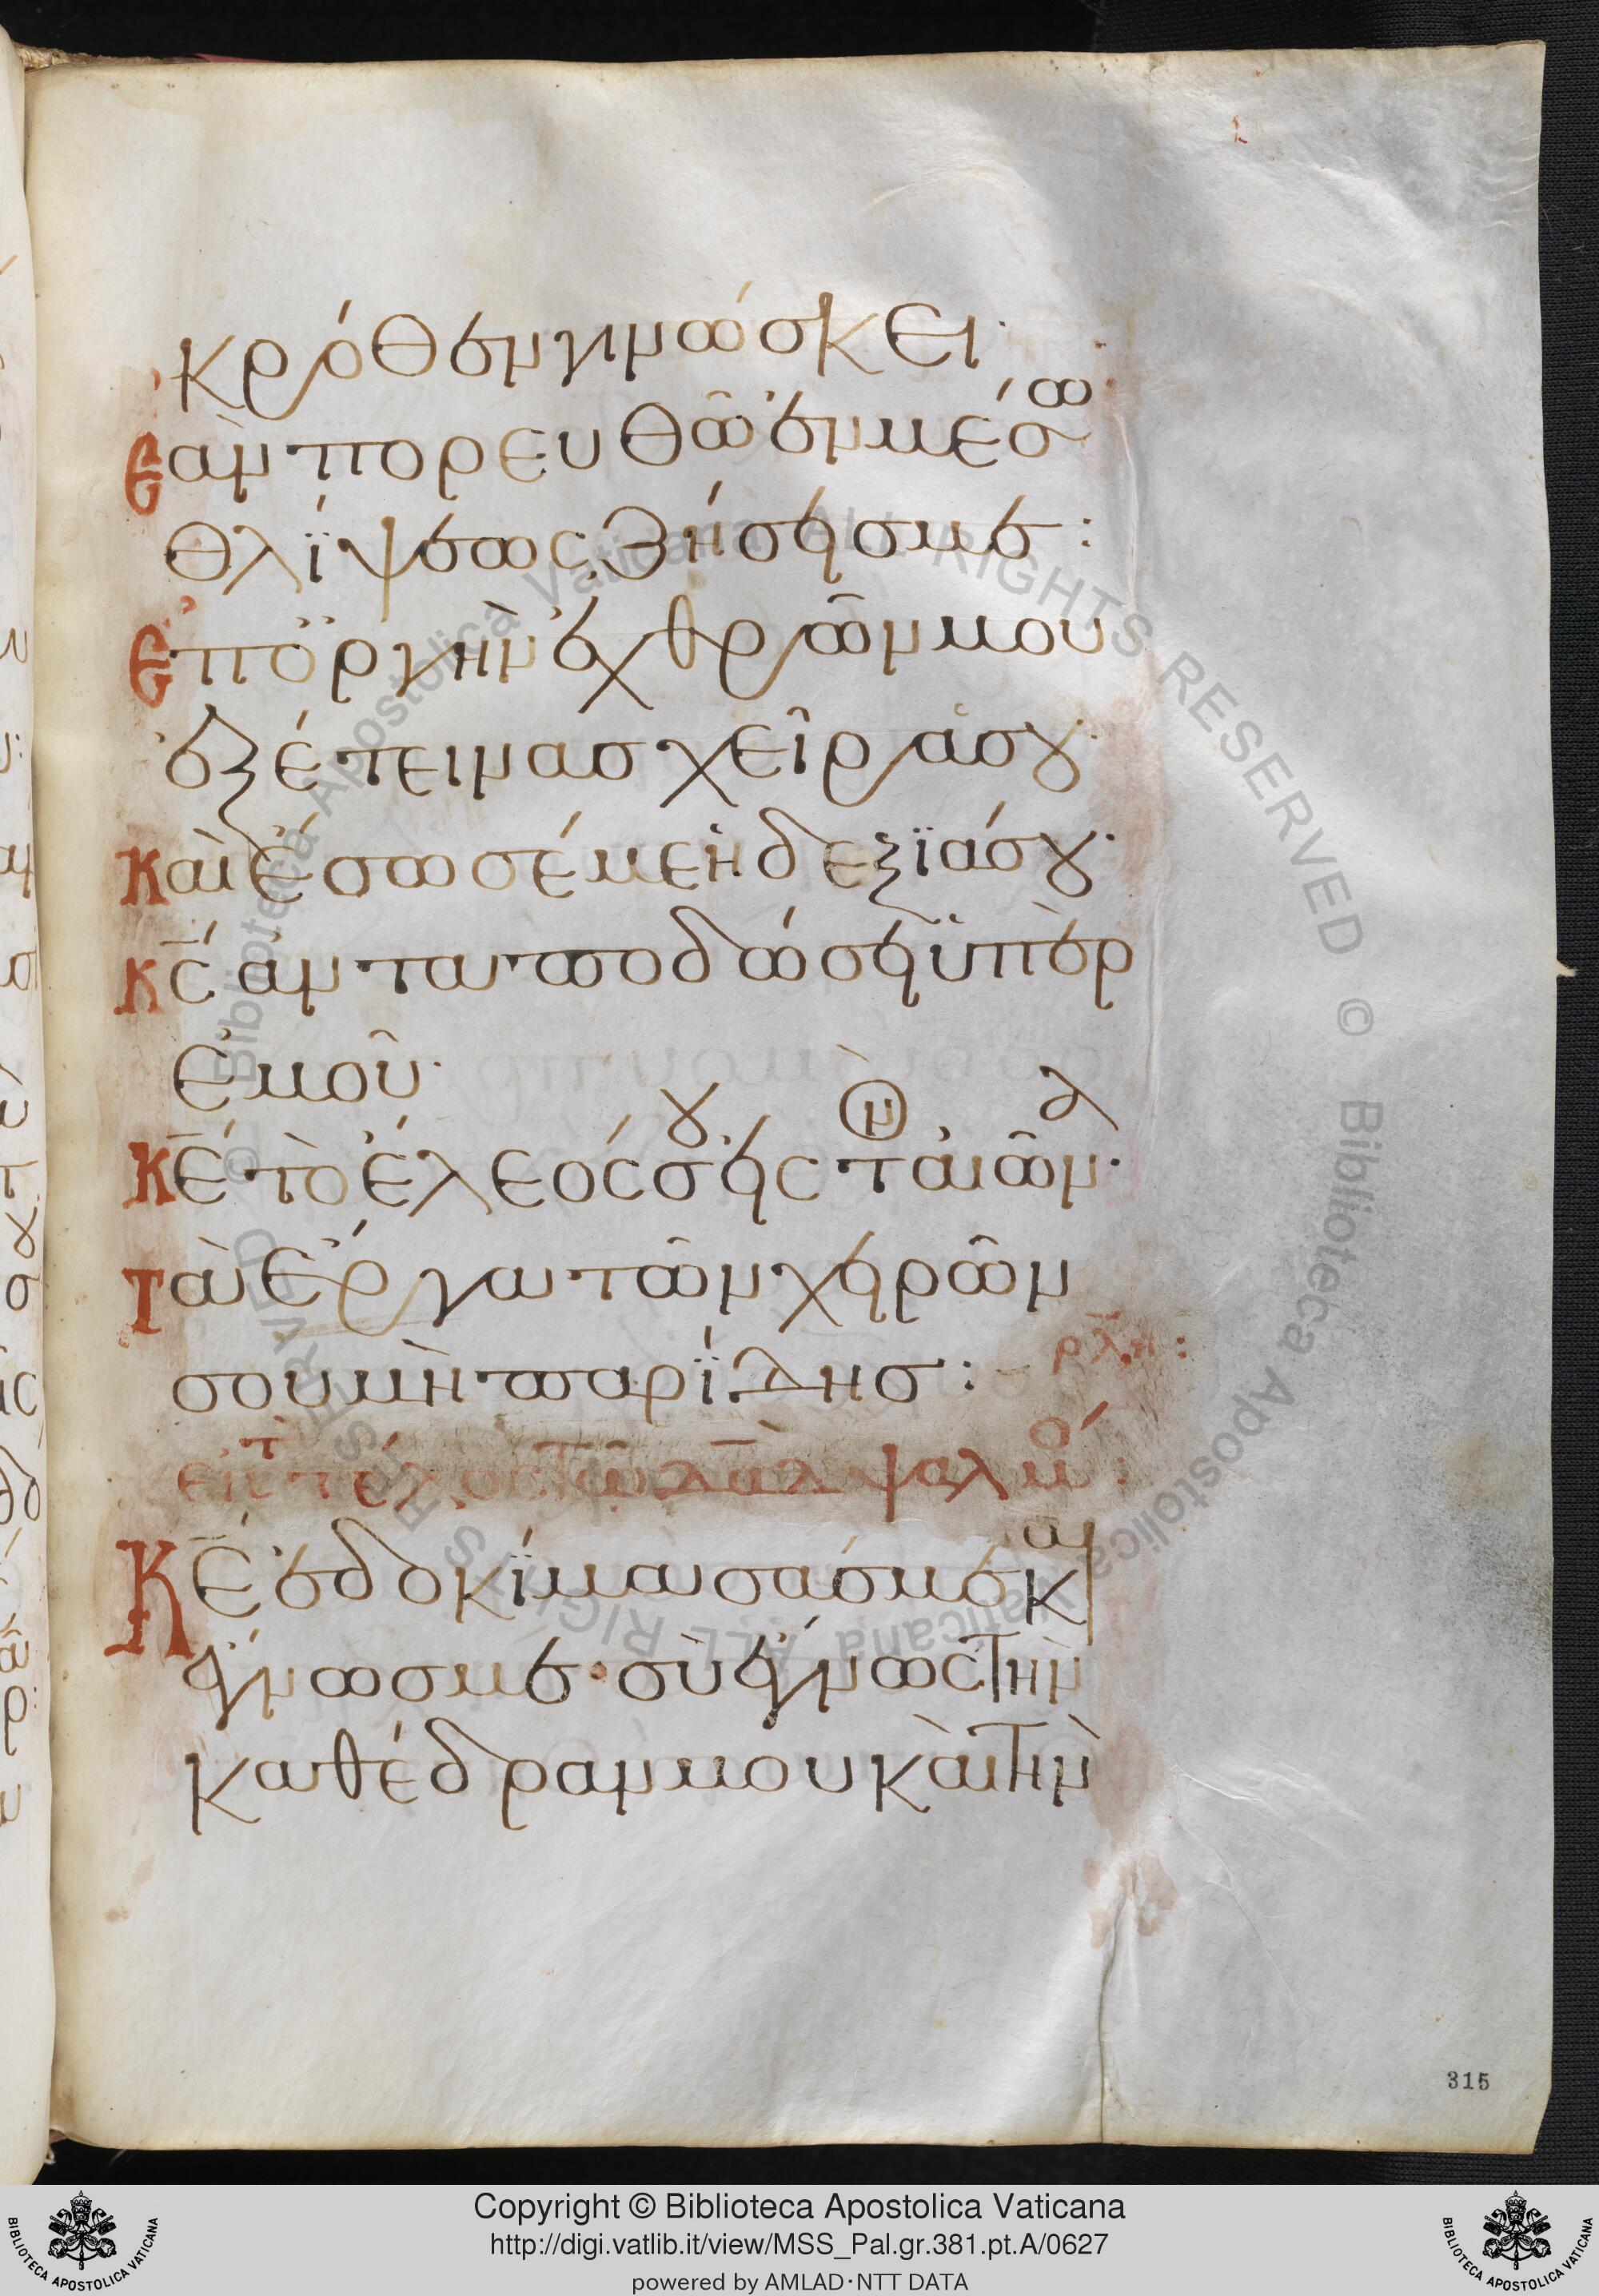 κρόθεν γινώσκει·
ἐὰν πορευθῶ ἐν μέσω
θλίψεως ζήσησ με:
ἐπ' ὀργὴν ἐχθρῶν μου
ἐξέτεινασ χεῖρά σου·
καὶ ἔσωσέ με ἡ δεξιά σου·
κς ἀνταποδώσει ὑπὲρ
ἐμοῦ·
κε τὸ ἔλεός σου εἰς τὸν αἰῶνα·
τὰ ἔργα τῶν χειρῶν
σου μὴ παρίδησ:
ρλη:
εἰς τὸ τέλος τῶ δαδ ψαλμό:
κε ἐδοκίμασάσ με καὶ
ἔγνωσ με· σὺ ἔγνως τὴν
καθέδραν μου καὶ τὴν
315
Biblioteca Apostolica Vaticana ALL RIGHTS RESERVED ©
Biblioteca Apostolica Vaticana ALL RIGHTS RESERVED ©
Copyright © Biblioteca Apostolica Vaticana
http://digi.vatlib.it/view/MSS_Pal.gr.381.pt.A/0627
powered by AMLAD·NTT DATA
BIBLIOTECA APOSTOLICA VATICANA
BIBLIOTECA APOSTOLICA VATICANA